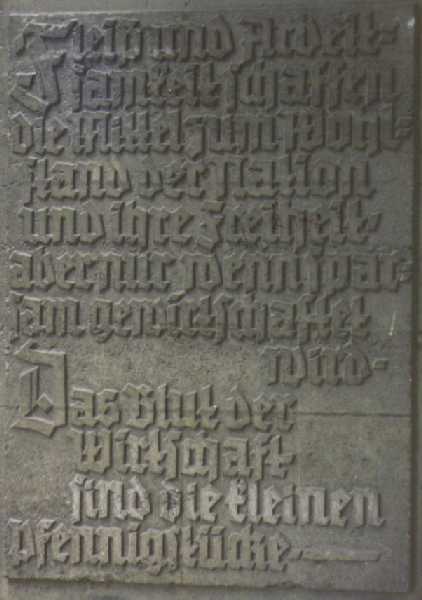 Fleiß und Arbeit-
samkeit schaffen
die Mittel zum Wohl-
stand der Nation
und ihre Freiheit-
aber nur wenn spar-
sam gewirtschaftet
wird-
Das Blut der
Wirtschaft
sind die kleinen
Pfennigstücke-